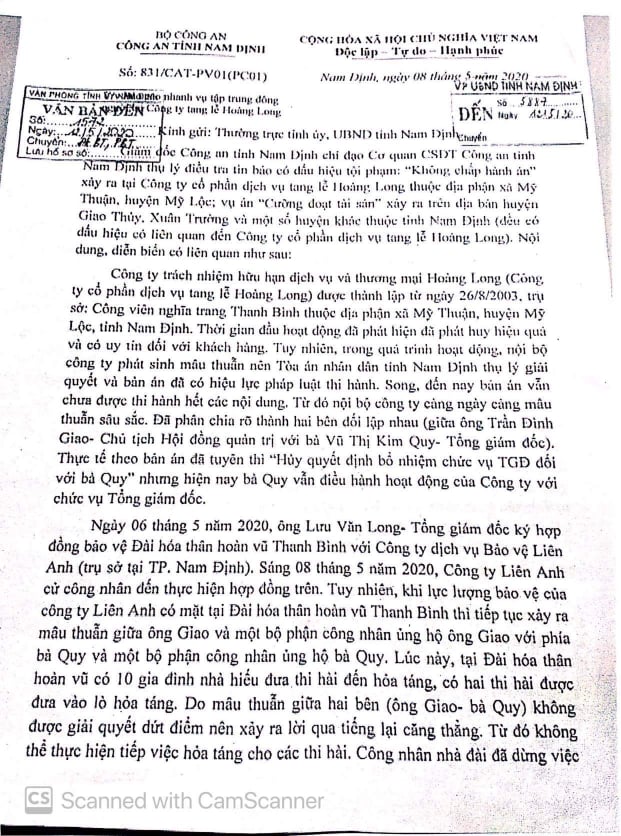 BỘ CÔNG AN
CÔNG AN TỈNH NAM ĐỊNH
CỘNG HÒA XÃ HỘI CHỦ NGHĨA VIỆT NAM
Độc lập – Tự do – Hạnh phúc
Số: 831/CAT-PV01(PC01)
Nam Định, ngày 08 tháng 5 năm 2020
nhanh vụ tập trung đông
Công ty tang lễ Hoàng Long
VĂN PHÒNG TỈNH
VĂN BẢN ĐẾN
Số: 1572
Ngày: 12/5/2020
Chuyển:
Lưu hồ sơ số:
VP UBND TỈNH NAM ĐỊNH
ĐẾN
Số 5887
Ngày 12/5/20
Chuyển
Kính gửi: Thường trực tỉnh ủy, UBND tỉnh Nam Định
Giám đốc Công an tỉnh Nam Định chỉ đạo Cơ quan CSĐT Công an tỉnh
Nam Định thụ lý điều tra tin báo có dấu hiệu tội phạm: “Không chấp hành án”
xảy ra tại Công ty cổ phần dịch vụ tang lễ Hoàng Long thuộc địa phận xã Mỹ
Thuận, huyện Mỹ Lộc; vụ án “Cưỡng đoạt tài sản” xảy ra trên địa bàn huyện
Giao Thủy, Xuân Trường và một số huyện khác thuộc tỉnh Nam Định (đều có
dấu hiệu có liên quan đến Công ty cổ phần dịch vụ tang lễ Hoàng Long). Nội
dung, diễn biến có liên quan như sau:
Công ty trách nhiệm hữu hạn dịch vụ và thương mại Hoàng Long (Công
ty cổ phần dịch vụ tang lễ Hoàng Long) được thành lập từ ngày 26/8/2003, trụ
sở: Công viên nghĩa trang Thanh Bình thuộc địa phận xã Mỹ Thuận, huyện Mỹ
Lộc, tỉnh Nam Định. Thời gian đầu hoạt động đã phát hiện đã phát huy hiệu quả
và có uy tín đối với khách hàng. Tuy nhiên, trong quá trình hoạt động, nội bộ
công ty phát sinh mâu thuẫn nên Tòa án nhân dân tỉnh Nam Định thụ lý giải
quyết và bản án đã có hiệu lực pháp luật thi hành. Song, đến nay bản án vẫn
chưa được thi hành hết các nội dung. Từ đó nội bộ công ty càng ngày càng mâu
thuẫn sâu sắc. Đã phân chia rõ thành hai bên đối lập nhau (giữa ông Trần Đình
Giao- Chủ tịch Hội đồng quản trị với bà Vũ Thị Kim Quy- Tổng giám đốc).
Thực tế theo bản án đã tuyên thì “Hủy quyết định bổ nhiệm chức vụ TGĐ đối
với bà Quy” nhưng hiện nay bà Quy vẫn điều hành hoạt động của Công ty với
chức vụ Tổng giám đốc.
Ngày 06 tháng 5 năm 2020, ông Lưu Văn Long- Tổng giám đốc ký hợp
đồng bảo vệ Đài hóa thân hoàn vũ Thanh Bình với Công ty dịch vụ Bảo vệ Liên
Anh (trụ sở tại TP. Nam Định). Sáng 08 tháng 5 năm 2020, Công ty Liên Anh
cử công nhân đến thực hiện hợp đồng trên. Tuy nhiên, khi lực lượng bảo vệ của
công ty Liên Anh có mặt tại Đài hóa thân hoàn vũ Thanh Bình thì tiếp tục xảy ra
mâu thuẫn giữa ông Giao và một bộ phận công nhân ủng hộ ông Giao với phía
bà Quy và một bộ phận công nhân ủng hộ bà Quy. Lúc này, tại Đài hóa thân
hoàn vũ có 10 gia đình nhà hiếu đưa thi hài đến hỏa táng, có hai thi hài được
đưa vào lò hỏa táng. Do mâu thuẫn giữa hai bên (ông Giao- bà Quy) không
được giải quyết dứt điểm nên xảy ra lời qua tiếng lại căng thẳng. Từ đó không
thể thực hiện tiếp việc hỏa táng cho các thi hài. Công nhân nhà đài đã dừng việc
CS Scanned with CamScanner